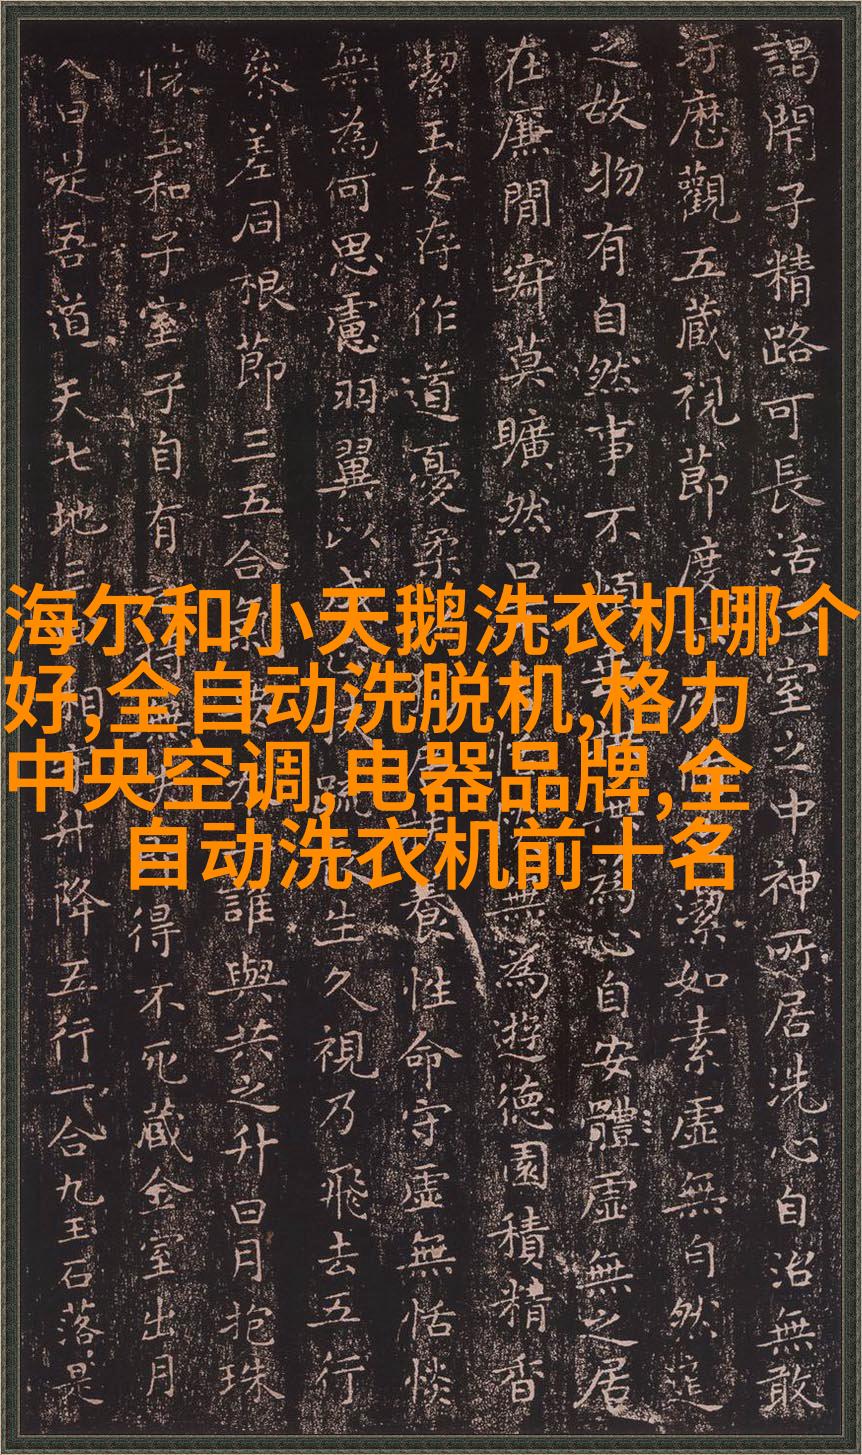 海尔和小天鹅洗衣机哪个
好,全自动洗脱机,格力
中央空调,电器品牌,全
自动洗衣机前十名
閇子精路可長活室之中神所居洗心自治無敢
汙歷觀五藏視節度潔如素虛無自然道
之故物有自然事不煩無為心自安體虛無之居
在廉閒寂莫曠然無為遊德園積精香
潔玉女存作道憂柔養性命守虛無恬惔
無為何思慮羽翼以成疏生久視乃飛去五行
參差同根節三五合氣誰與共之升日月抱珠
懷玉和子室子自有得不死藏金室出月
入日是吾道天七地三升降五行一合九玉石落是